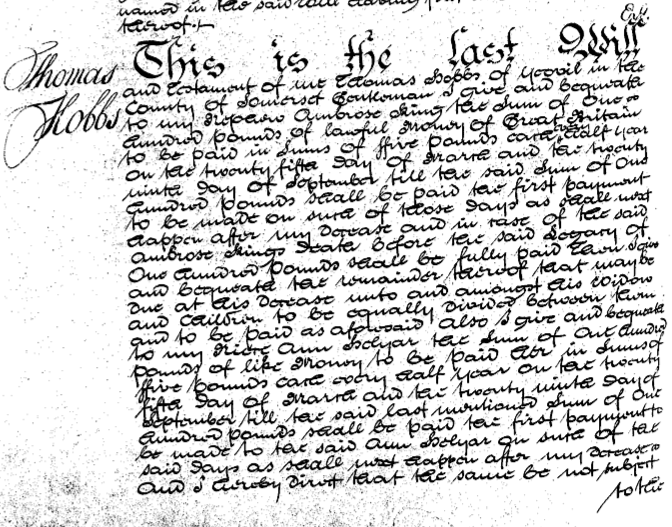 named in the said Will having
thereof.
Exh.
Thomas
Hobbs
This is the last Will
and Testament of me Thomas Hobbs of Yeovil in the
County of Somerset Gentleman I give and bequeath
to my Nephew Ambrose King the Sum of One
hundred pounds of lawful Money of Great Britain
to be paid in Sums of ffive pounds each every half year
On the twenty fifth day Of March and the twenty
ninth day Of September till the said Sum of One
hundred pounds shall be paid the first payment
to be made on such of those days as shall next
happen after my decease and in case of the said
Ambrose Kings death before the said Legacy of
One hundred pounds shall be fully paid then I give
and bequeath the remainder thereof that may be
due at his decease unto and amongst his Widow
and Children to be equally divided between them
and to be paid as aforesaid Also I give and bequeath
to my Niece Ann Helyar the Sum of One hundred
pounds of like Money to be paid her in Sums of
ffive pounds each every half year on the twenty
fifth day Of March and the twenty ninth day of
September till the said last mentioned Sum of One
hundred pounds shall be paid the first payment to
be made to the said Ann Helyar On such of the
said days as shall next happen after my decease
And I hereby direct that the same be not subject
to the